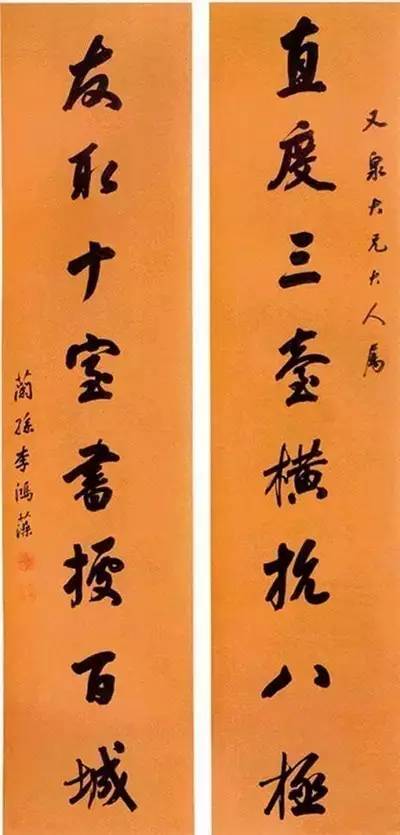 又泉大兄大人屬
直度三臺橫抗八極
友取十室書據百城
蘭孫李鴻藻